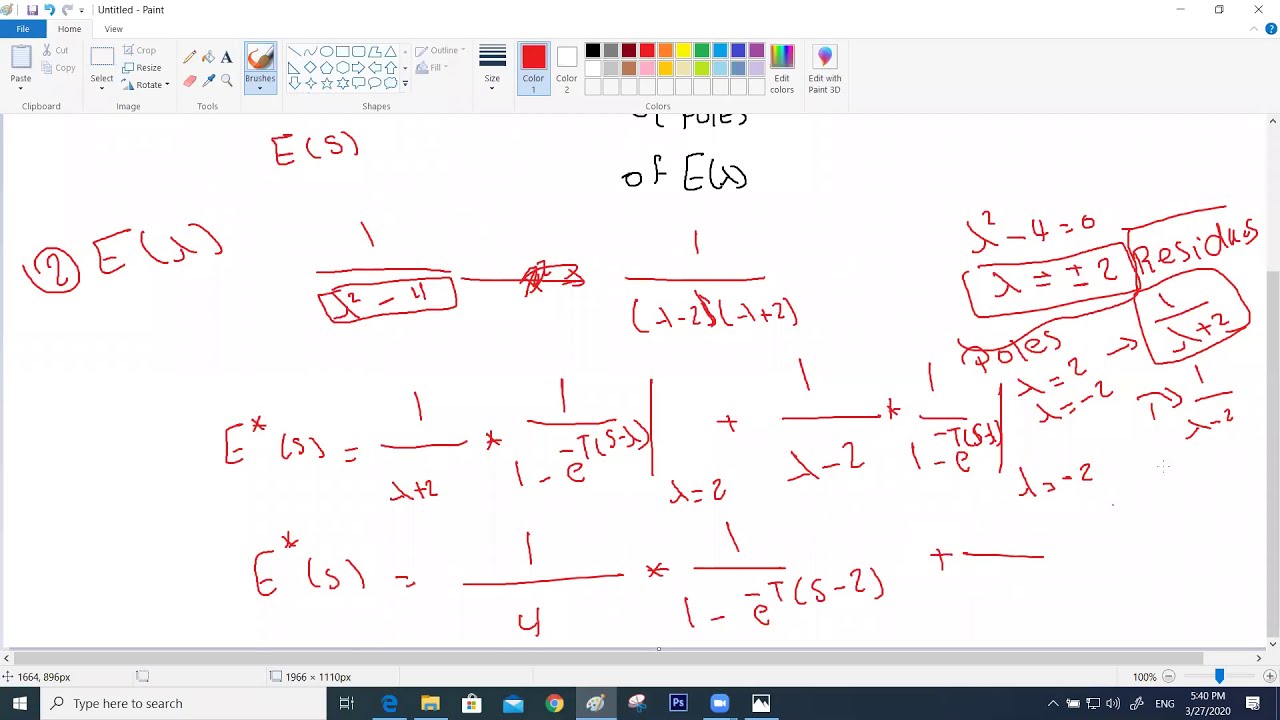 Untitled - Paint
File Home View
Paste Cut Copy Clipboard
Select Crop Resize Rotate Image
Tools
Brushes
Shapes Outline Fill
Size
Color 1 Color 2 Edit colors Colors
Edit with Paint 3D
of poles
E(S)
of E(λ)
② E(λ) 1/(λ² - 4) 1/((λ-2)(λ+2))
λ² - 4 = 0
λ = ± 2
Residus
1/(λ+2)
poles
λ = 2 →
λ = -2 → 1/(λ-2)
E*(S) = 1/(λ+2) * 1/(1 - e^(-T(S-λ))) | λ = 2 + 1/(λ-2) * 1/(1 - e^(-T(S-λ))) | λ = -2
E*(S) = 1/4 * 1/(1 - e^(-T(S-2))) + —
1664, 896px 1966 × 1110px 100%
Type here to search
ENG 5:40 PM
3/27/2020